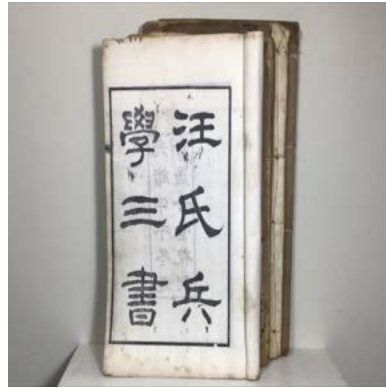 汪氏兵
學三書